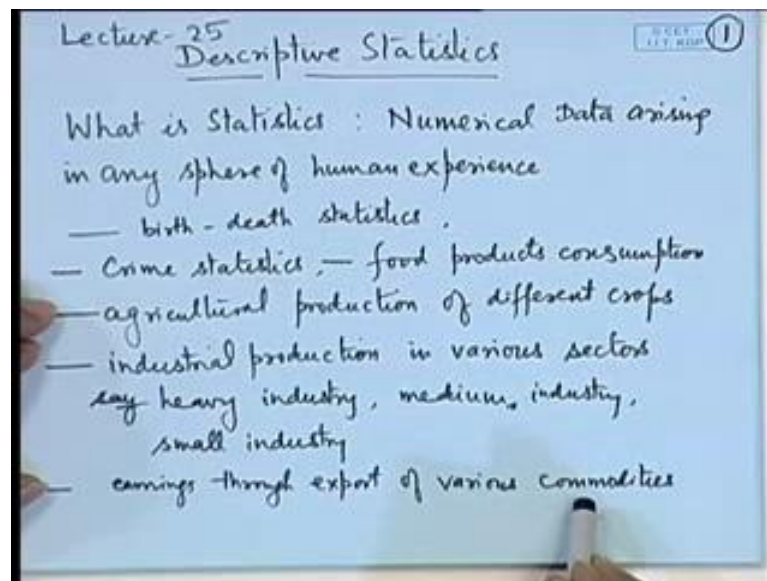 Lecture-25
Descriptive Statistics
1
What is Statistics : Numerical Data arising
in any sphere of human experience
— birth-death statistics.
— Crime statistics, — food products consumption
— agricultural production of different crops
— industrial production in various sectors
say heavy industry, medium industry,
small industry
— earnings through export of various commodities